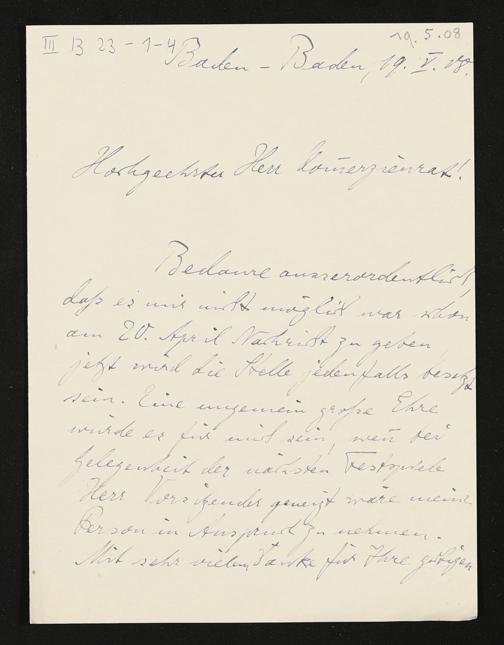 III B 23-1-4
19.5.08
Baden-Baden, 19. V. 08.
Hochgeehrter Herr Komerzienrat!
Bedaure ausserordentlich,
daß es mir nicht möglich war schon
am 20. April Nachricht zu geben
jetzt wird die Stelle jedenfalls besetzt
sein. Eine ungemein große Ehre
würde es für mich sein, wen bei
Gelegenheit der nächsten Festspiele
Herr Vorsitzender geneigt wäre meine
Person in Anspruch zu nehmen.
Mit sehr vielem Danke für Ihre gütigen